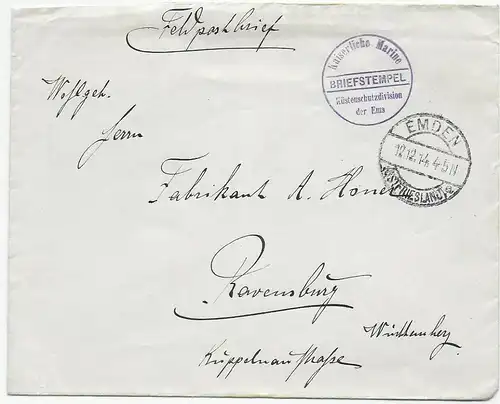 Feldpostbrief
Kaiserliche Marine
BRIEFSTEMPEL
Küstenschutzdivision
der Ems
EMDEN
12.12.14.4-5N
(OSTFRIESLAND) a
Wohlgeb.
Herrn
Fabrikant A. Honer
Ravensburg
Württemberg
Kuppelnaustraße